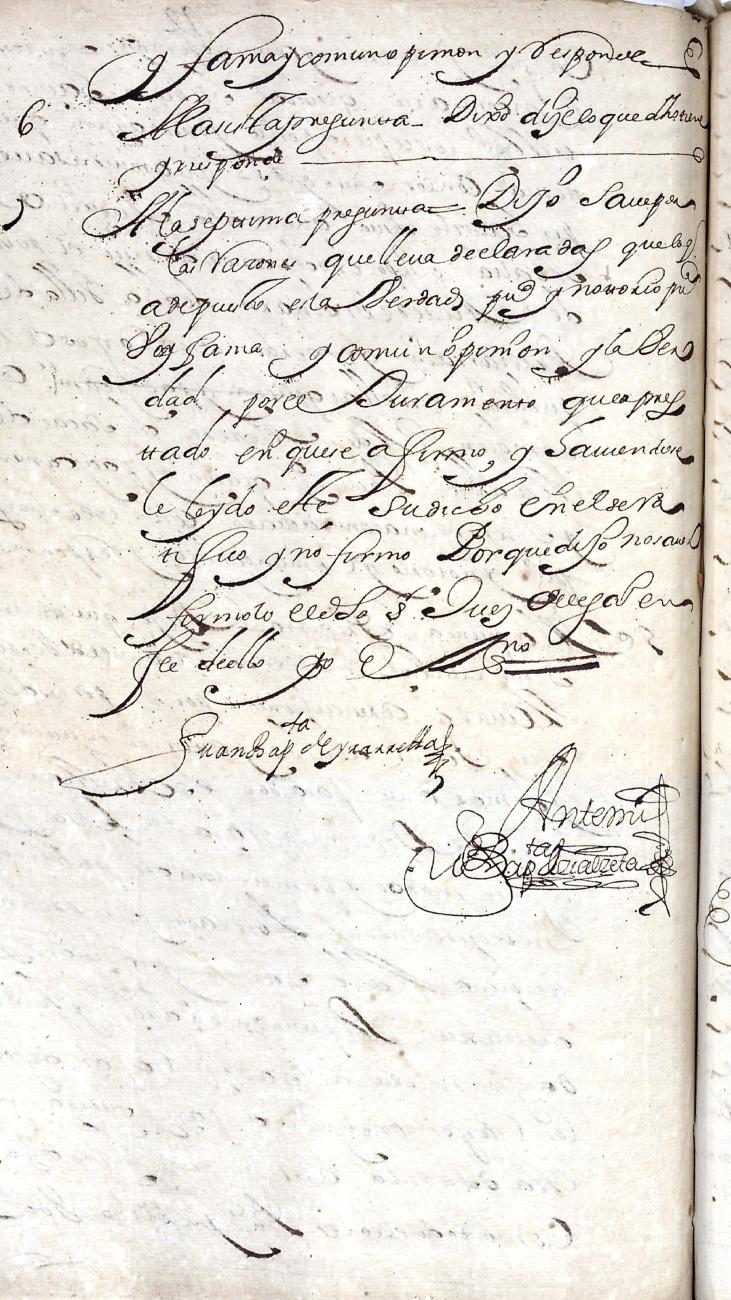 y fama y comun opinion y responde
6 A la sesta pregunta Dixo dize lo que dho tiene
y responde
7 A la septima pregunta Dijo save por
las raçones que lleva declaradas que lo q
a depuesto es la Verdad puᶜᵒ y notorio puᶜᵃ
Voz y fama y comun opinion y la Ver
dad por el Juramento que a pres
tado en que se afirmo, y haviendose
le leydo este su dicho en el se ra
tifico y no firmo Porque dijo no saver
firmolo el dho sʳ Juez y en
fee de ello yo el ssⁿᵒ
Juan Bapᵗᵃ de Yrarreta
Ante mi
Bapᵗᵃ